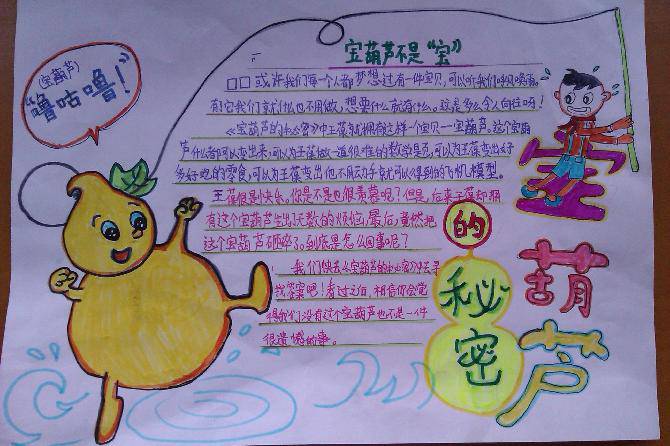 (宝葫芦)
"噜咕噜!"
宝葫芦不是"宝"
□□或许我们每个人都梦想过有一件宝贝,可以听我们呼风唤雨。
有它我们就什么也不用做,想要什么就有什么。这是多么令人向往呀!
《宝葫芦的秘密》中王葆就拥有这样一个宝贝—宝葫芦。这个宝葫
芦什么都可以变出来,可以为王葆做一道很难的数学题,可以为王葆变出好
多好吃的零食,可以为王葆出不用动手就可以得到的飞机模型。
王葆很是快乐。你是不是也很羡慕呢?但是,后来王葆却拥
有这个宝葫芦生出了无数的烦恼,最后,竟然把
这个宝葫芦砸碎了。到底是怎么回事呢?
我们快去《宝葫芦的秘密》中去寻
找答案吧!看过之后,相信你会觉
得我们没有这个宝葫芦也不是一件
很遗憾的事。
宝
葫
芦
的
秘
密